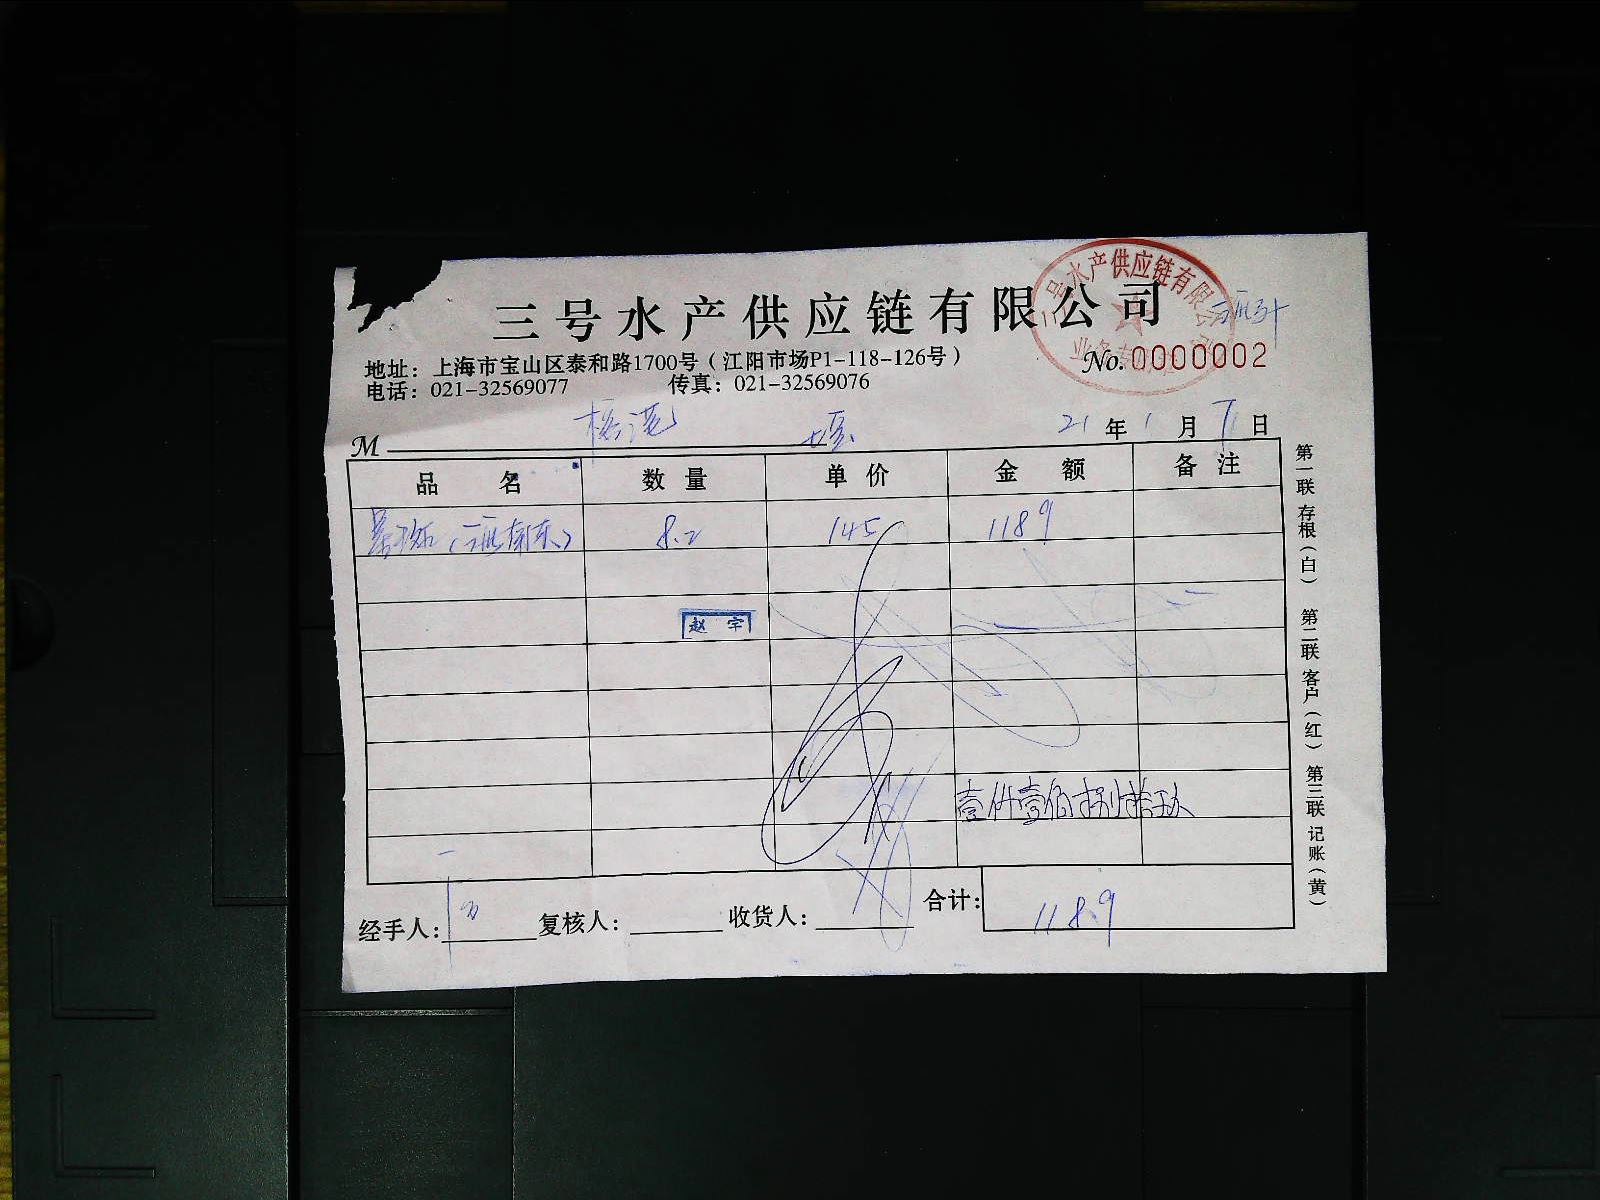 三号水产供应链有限公司
地址：上海市宝山区泰和路1700号（江阳市场P1-118-126号）
电话：021-32569077 传真：021-32569076
No.0000002
水产供应链有限
M
21年1月7日
品名 数量 单价 金额 备注
8.2 145 1189
赵宇
壹仟壹佰捌拾玖
经手人： 复核人： 收货人： 合计：1189
第一联存根（白） 第二联客户（红） 第三联记账（黄）